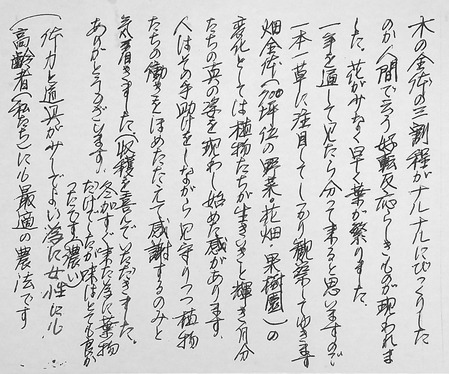 木の全体の三割程がナルナルにびっくりした
のか人間でいう好転反応らしきものが現われま
した。花が少なく早く葉が繁りました。
一年を通して見たら分って来ると思いますので
一本一草に注目してしっかり観察してゆきます
畑全体(700坪位の野菜。花畑 果樹園)の
変化としては植物たちが生きいきと輝き自分
たちの真の姿を現わし始めた感があります。
人はその手助けをしながら見守りつつ植物
たちの働きをほめたたえて感謝するのみと
気づきました。収穫を喜んでいただきました。
ありがとうございます。
冬がすぐ来た為に葉物
だけでしたが味はとても良か
ったです(濃い)
(体力と道具が少しでよい為に女性にも
高齢者(私たち)にも最適の農法です